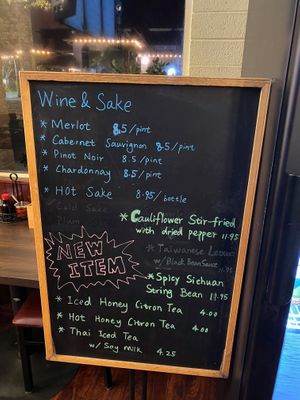 Wine & Sake
* Merlot 8.5/pint
* Cabernet Sauvignon 8.5/pint
* Pinot Noir 8.5/pint
* Chardonnay 8.5/pint
* Hot Sake 8.95/bottle
Cold Sake
Plum
* Cauliflower Stir-fried
with dried pepper 11.95
* Taiwanese
w/ Black Bean Sauce
NEW
ITEM
* Spicy Sichuan
String Bean 11.95
* Iced Honey Citron Tea 4.00
* Hot Honey Citron Tea 4.00
* Thai Iced Tea
w/ Soy Milk 4.25